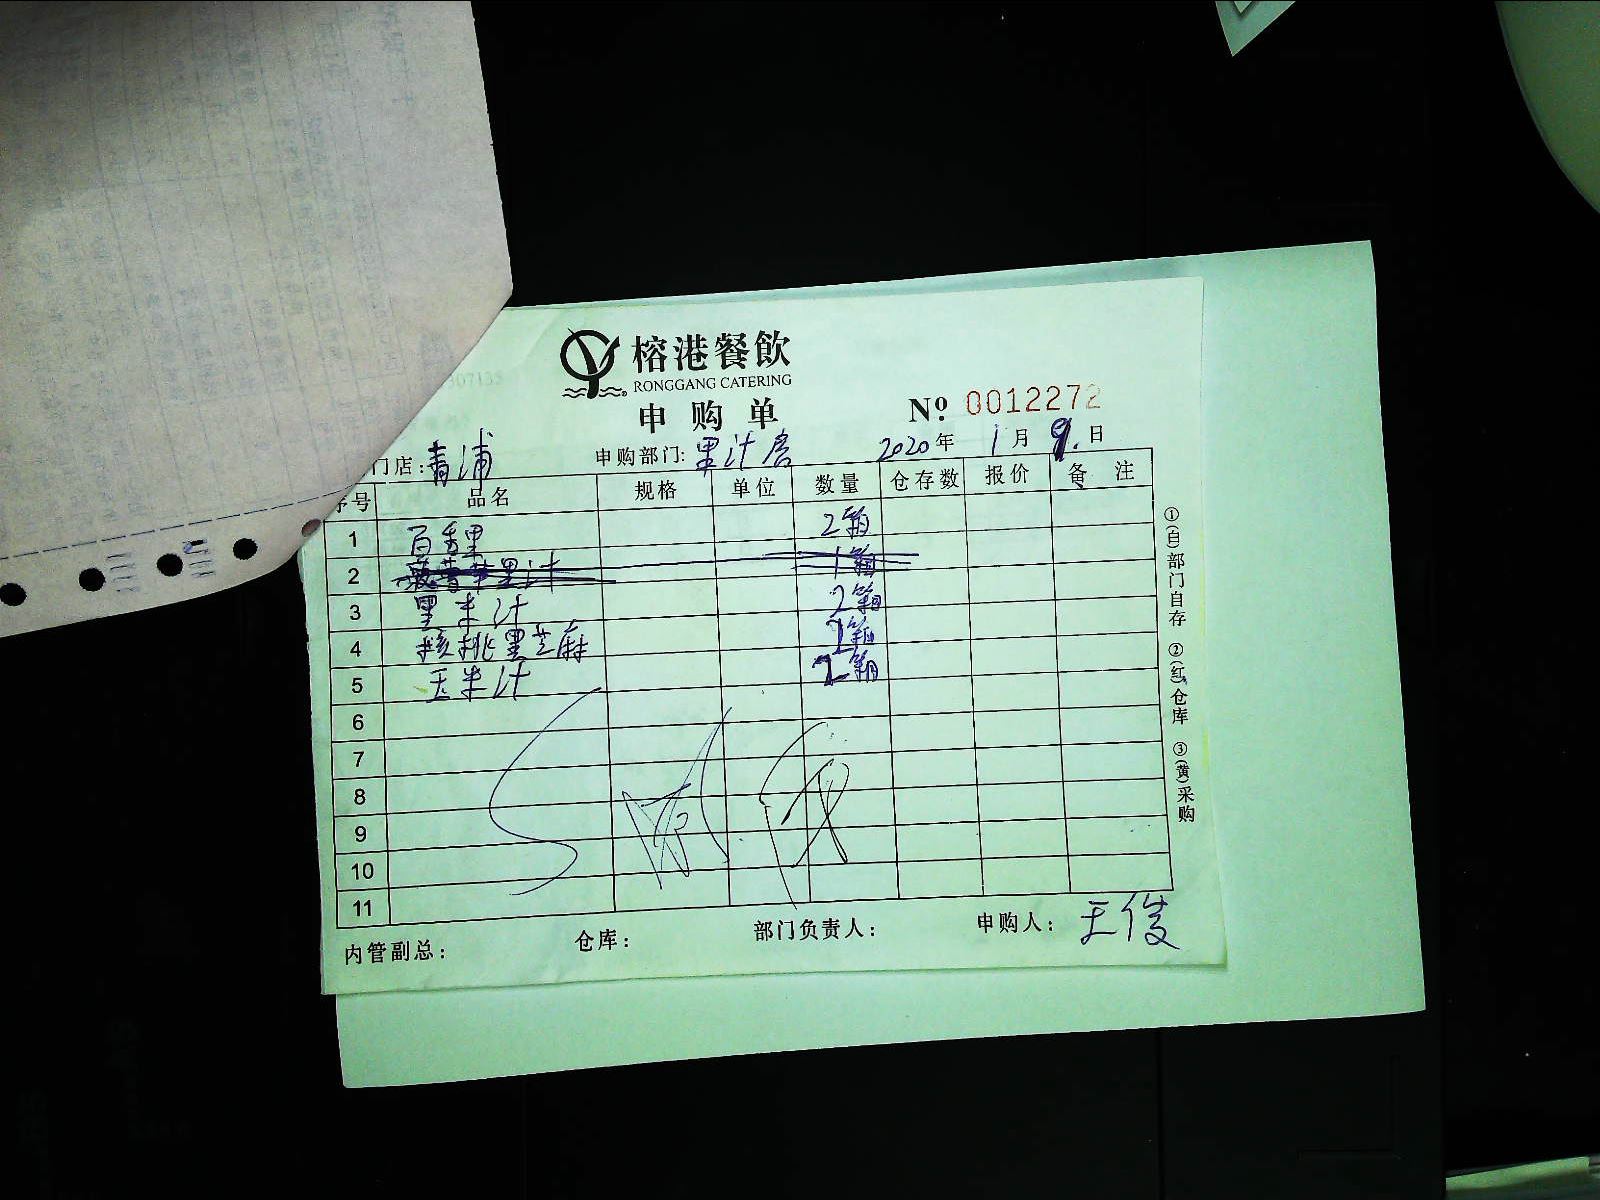 榕港餐飲
RONGGANG CATERING
申购单
№ 0012272
门店:青浦 申购部门:果汁房 2020年1月9日
序号 品名 规格 单位 数量 仓存数 报价 备注
1 百香果 2箱
2 果汁 1箱
3 黑米汁 2箱
4 核桃黑芝麻 1箱
5 玉米汁 2箱
6
7
8
9
10
11
内管副总: 仓库: 部门负责人: 申购人:王俊
①(自)部门自存 ②(红)仓库 ③(黄)采购